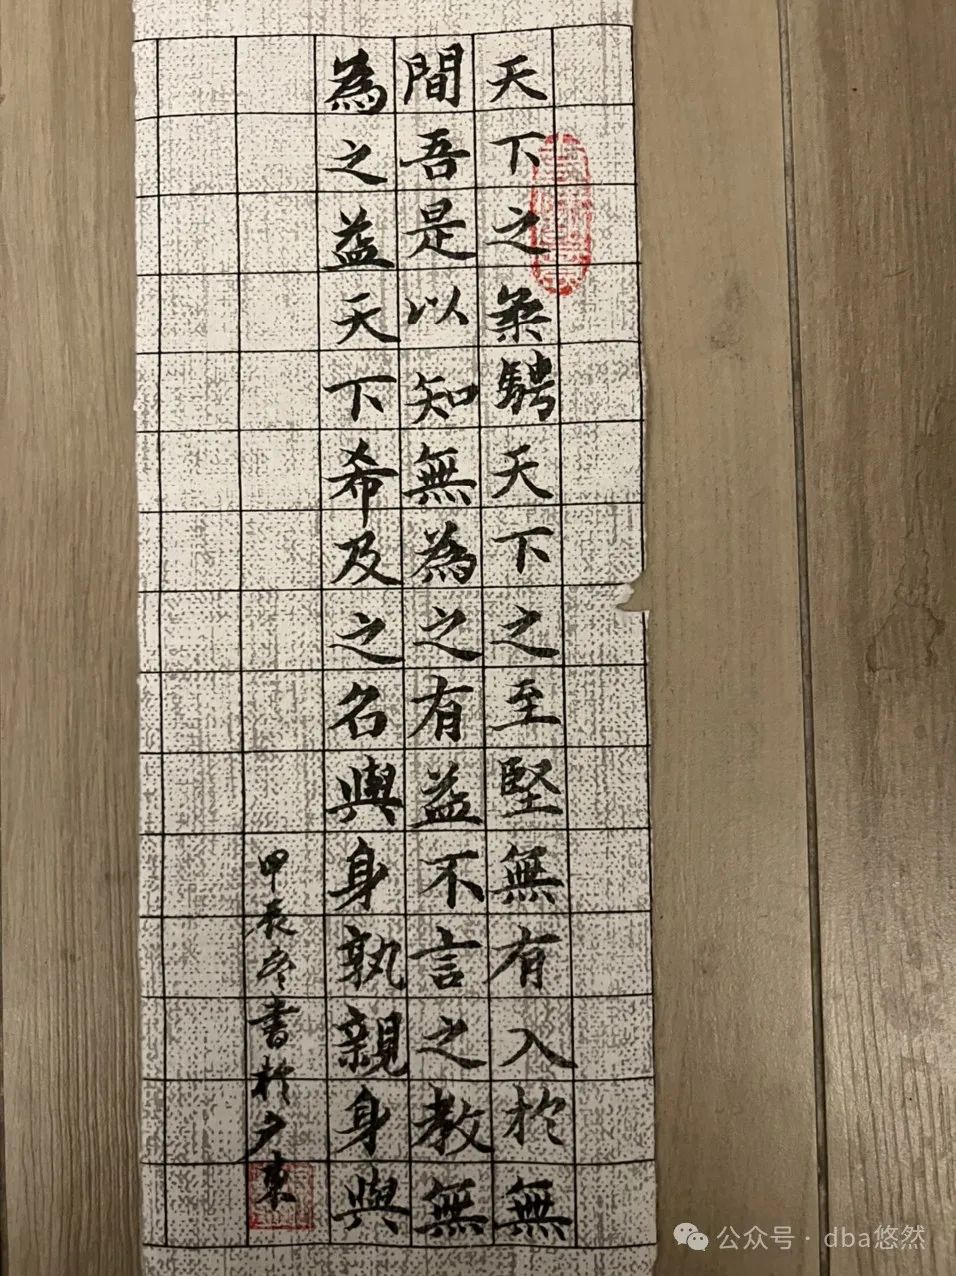 天下之柔騁天下之至堅無有入於無
間吾是以知無為之有益不言之教無
為之益天下希及之名與身孰親身與
甲辰冬書於東
公众号·dba悠然